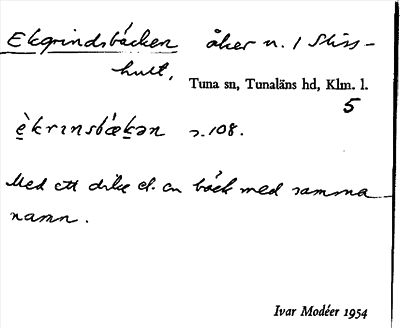 Ekgrindsbäcken åker n. 1 Sliss-
hult,
Tuna sn, Tunaläns hd, Klm. l.
5
è̱krɪnsbæ̀ḵən s. 108.
Med ett dike el. en bäck med samma
namn.
Ivar Modéer 1954